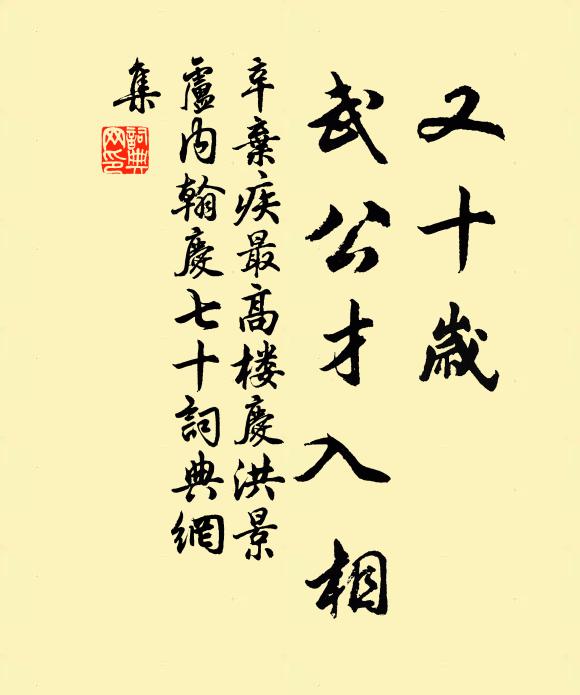 又十歲
武公才入相
辛棄疾最高楼慶洪景
盧内翰慶七十詞典網
集
詞典网印